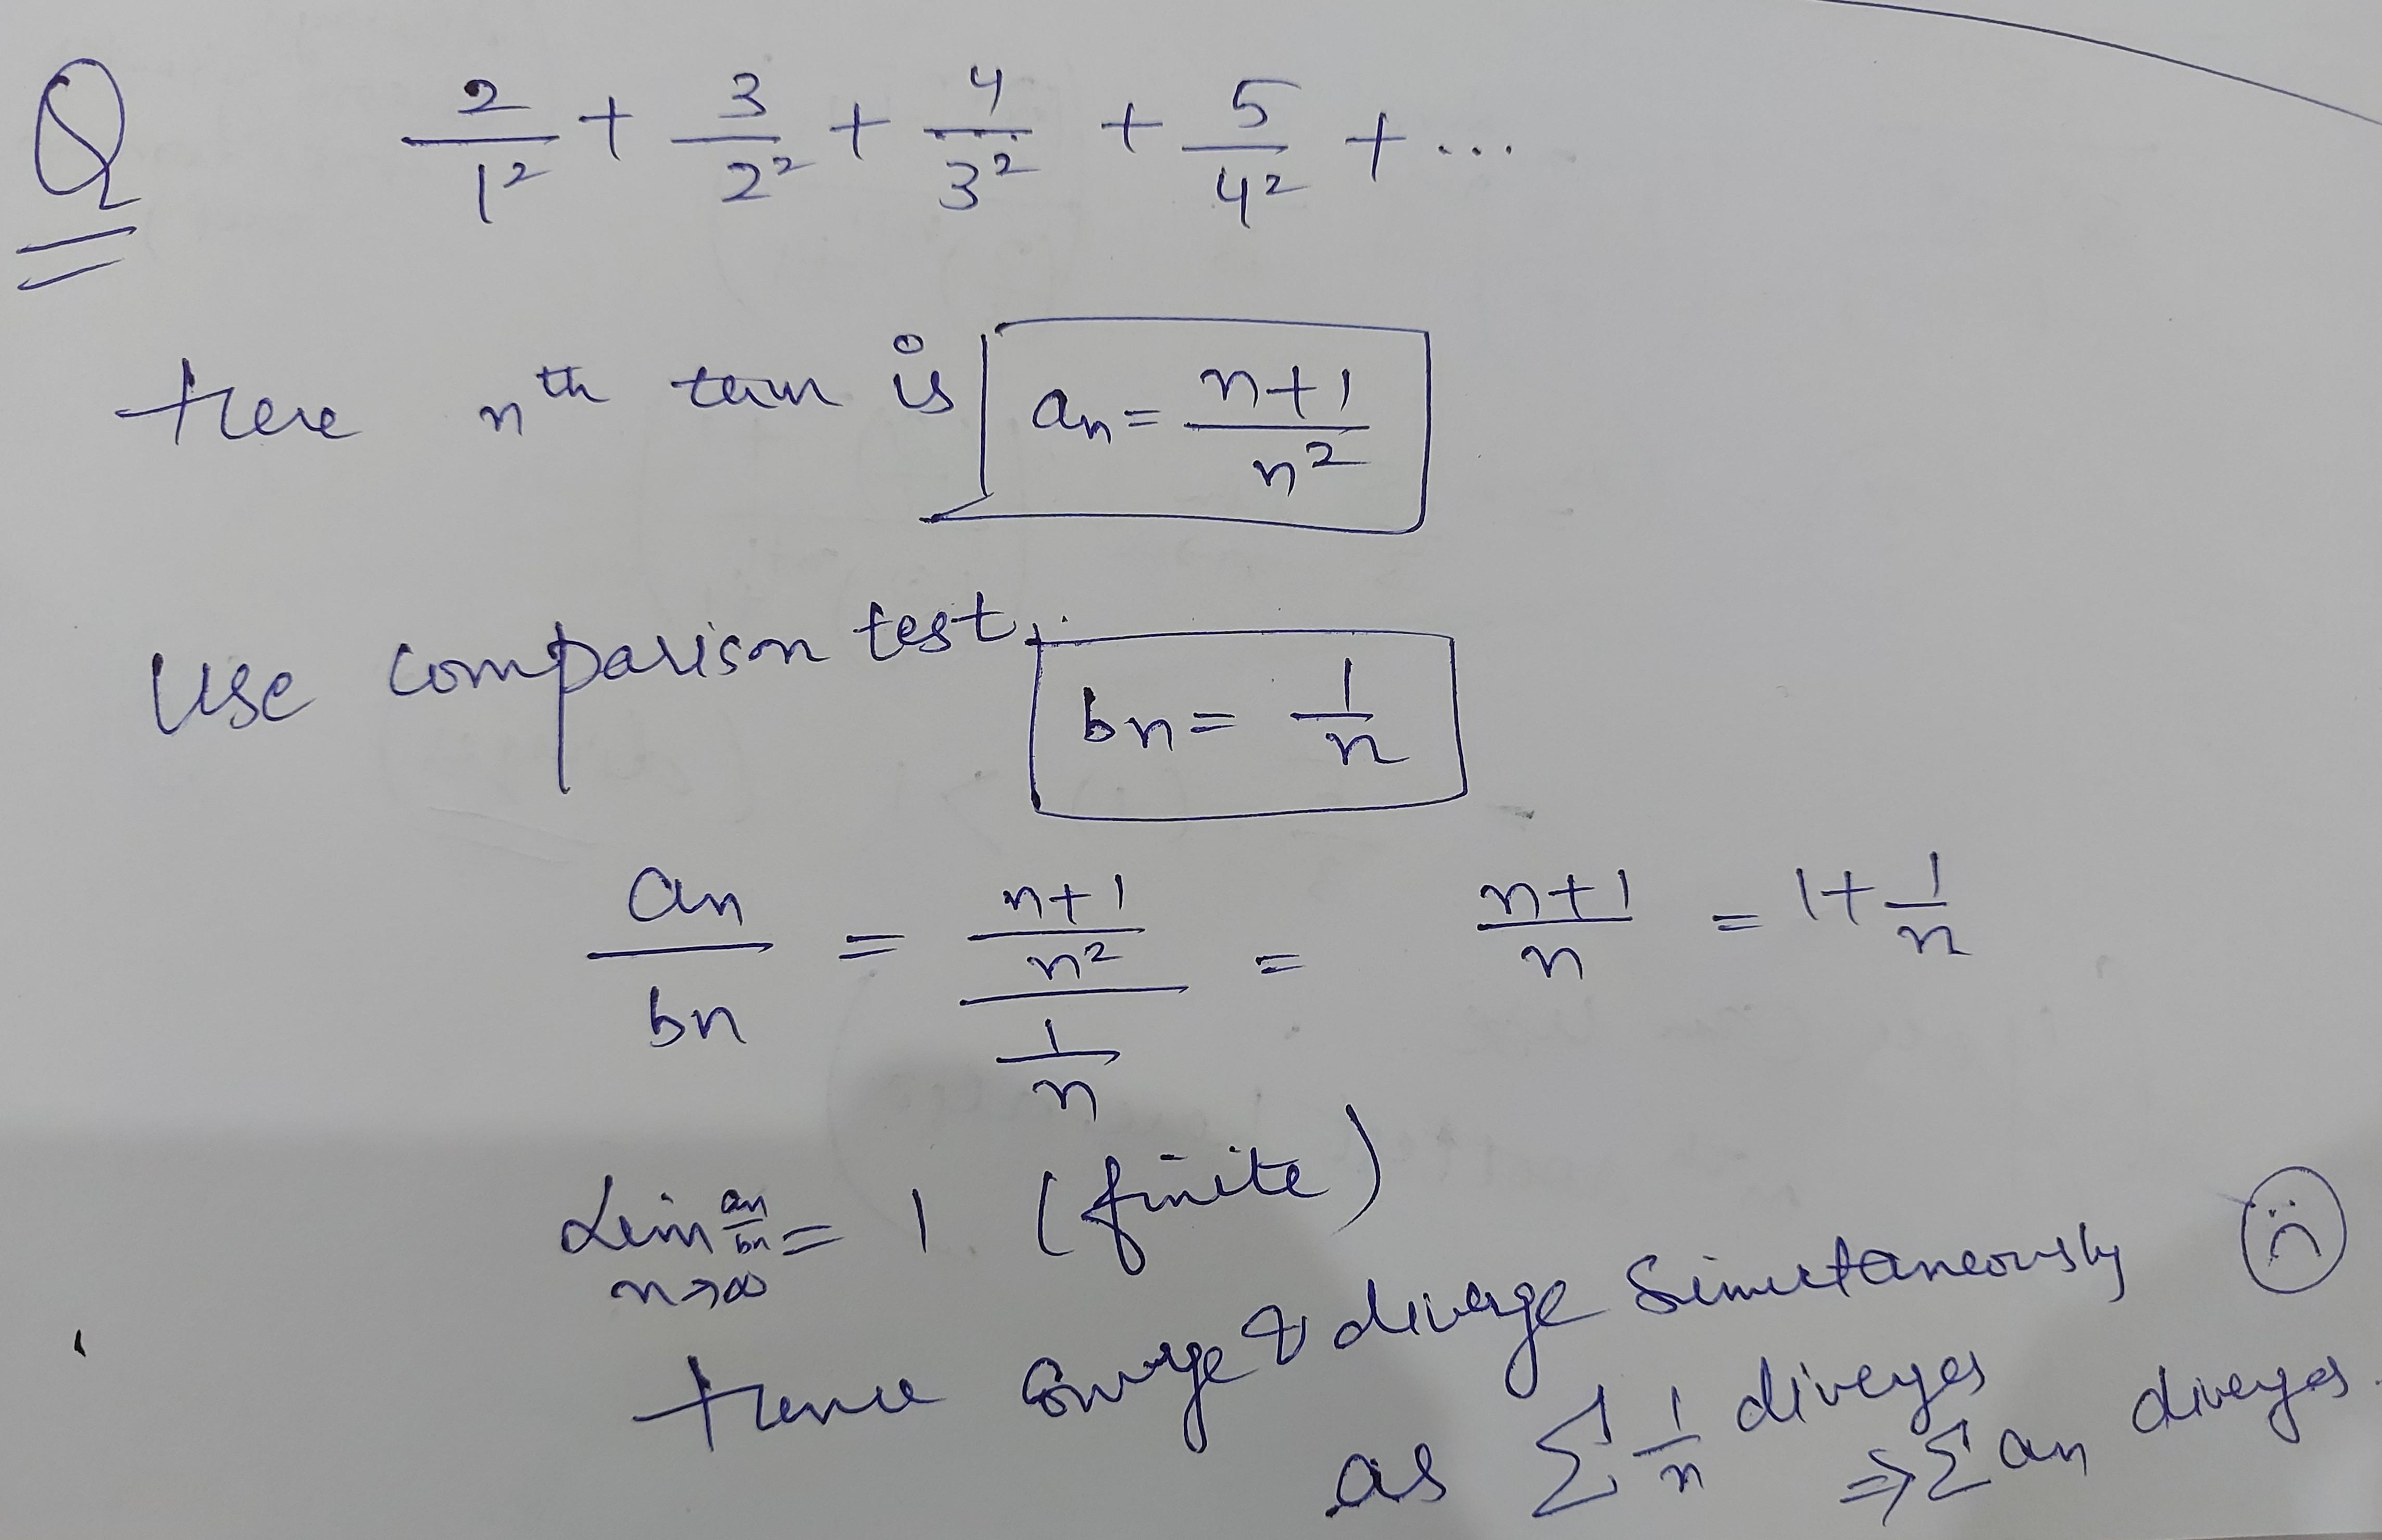 Q 2/1² + 3/2² + 4/3² + 5/4² + ...
Here nth term is aₙ = (n+1)/n²
Use comparison test, bₙ = 1/n
aₙ/bₙ = ((n+1)/n²)/(1/n) = (n+1)/n = 1 + 1/n
Lim n→∞ aₙ/bₙ = 1 (finite)
Hence converge & diverge simultaneously
as Σ 1/n diverges ⇒ Σ aₙ diverges.